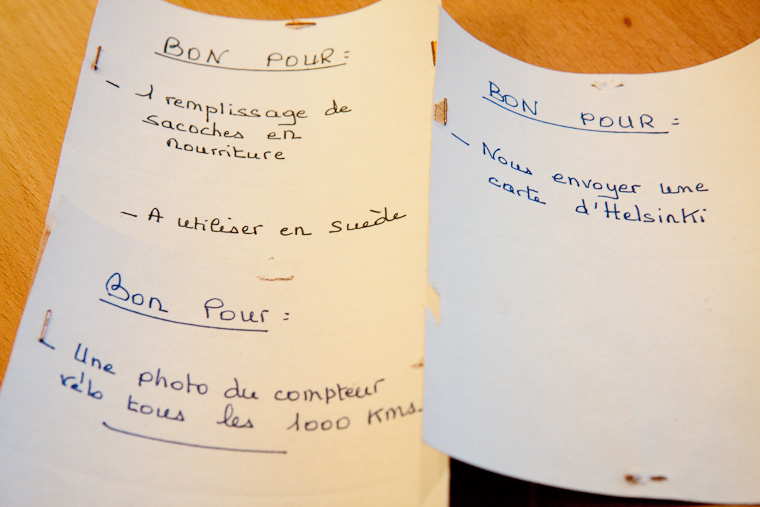 BON POUR:
- 1 remplissage de
sacoches en
nourriture
- A utiliser en suède
Bon Pour:
Une photo du compteur
vélo tous les 1000 Kms.
BON POUR:
- Nous envoyer une
carte d'Helsinki